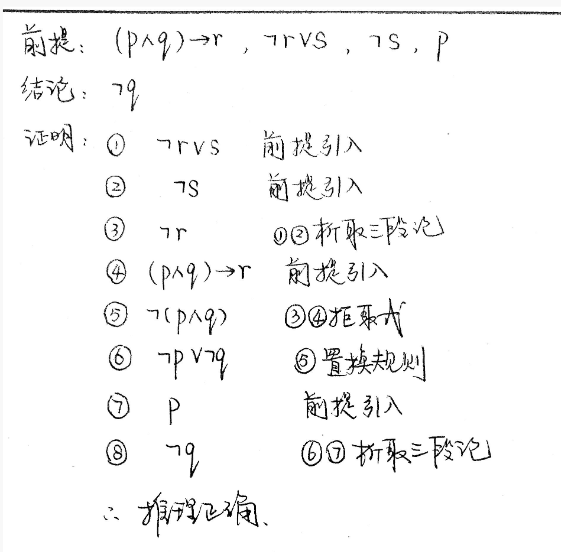 前提: (p∧q)→r , ¬r∨s , ¬s , p
结论: ¬q
证明: ① ¬r∨s 前提引入
② ¬s 前提引入
③ ¬r ①②析取三段论
④ (p∧q)→r 前提引入
⑤ ¬(p∧q) ③④拒取式
⑥ ¬p∨¬q ⑤置换规则
⑦ p 前提引入
⑧ ¬q ⑥⑦析取三段论
∴ 推理正确.